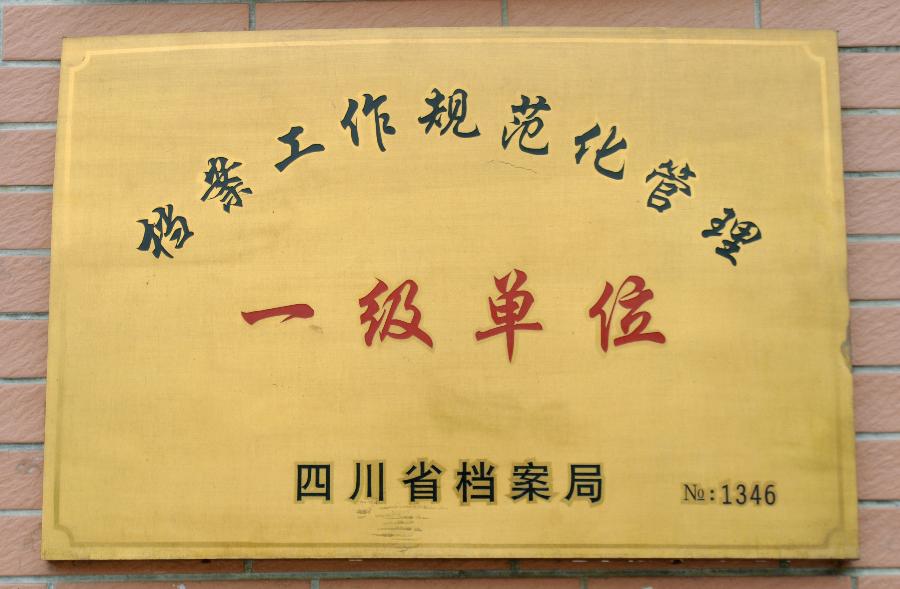 档案工作规范化管理
一级单位
四川省档案局
№:1346